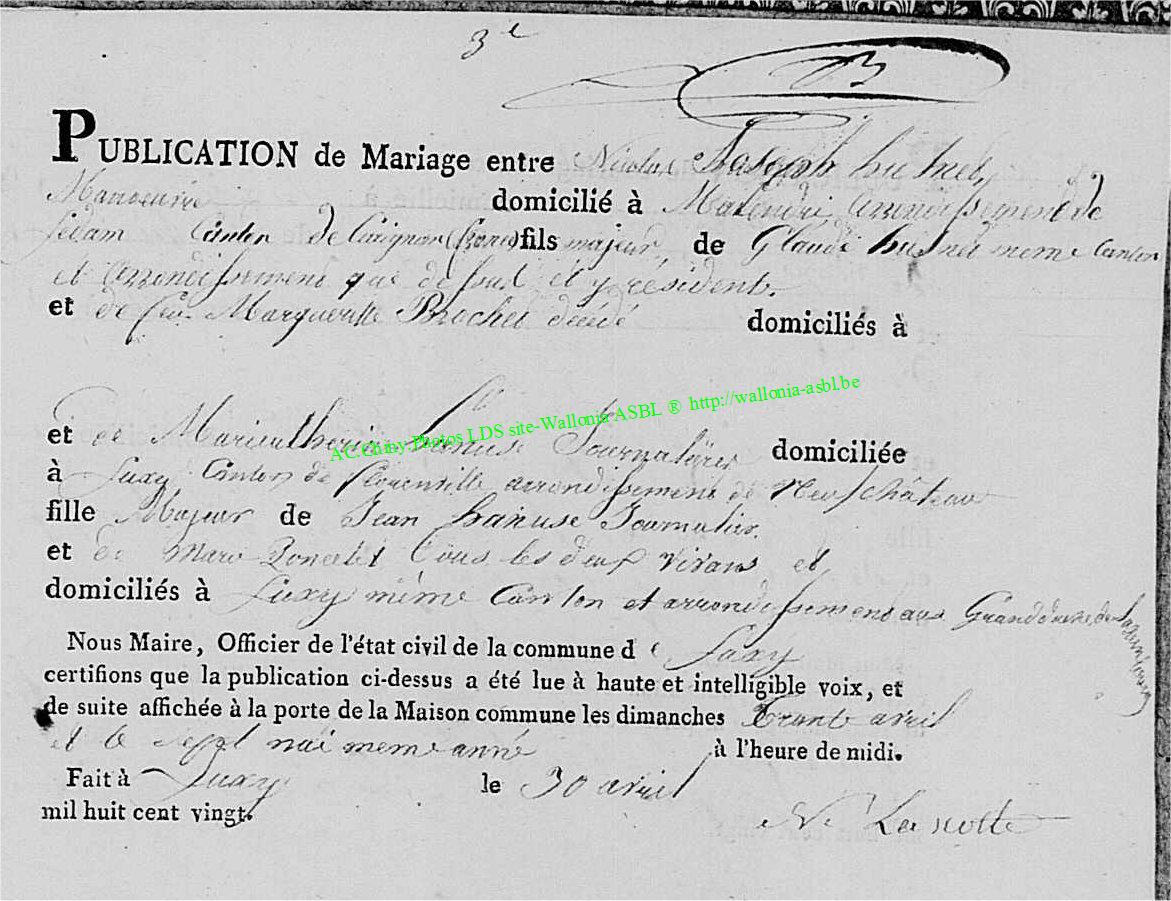 3e
B
PUBLICATION de Mariage entre Nicolas Joseph
domicilié à Matendri arrondissement de
Sedam Canton de Carignan fils majeur, de Glaude même Canton
et arrondissement que dessus et y résident.
et de feu Marguerite Brochet décédé domiciliés à
AC.Chiny.Photos LDS site-Wallonia ASBL ® http://wallonia-asbl.be
et de hanuse Journalière domiciliée
à Suxy Canton de florenville arrondissement de Neufchâteau
fille Majeur de Jean hanuse Journalier.
et de Marie Poncelet tous les deux vivans et
domiciliés à Suxy même Canton et arrondissement aux Grand duché de Luxembourg
Nous Maire, Officier de l'état civil de la commune de Suxy
certifions que la publication ci-dessus a été lue à haute et intelligible voix, et
de suite affichée à la porte de la Maison commune les dimanches trante avril
et le sept mai meme anné à l'heure de midi.
Fait à Suxy le 30 avril
mil huit cent vingt.